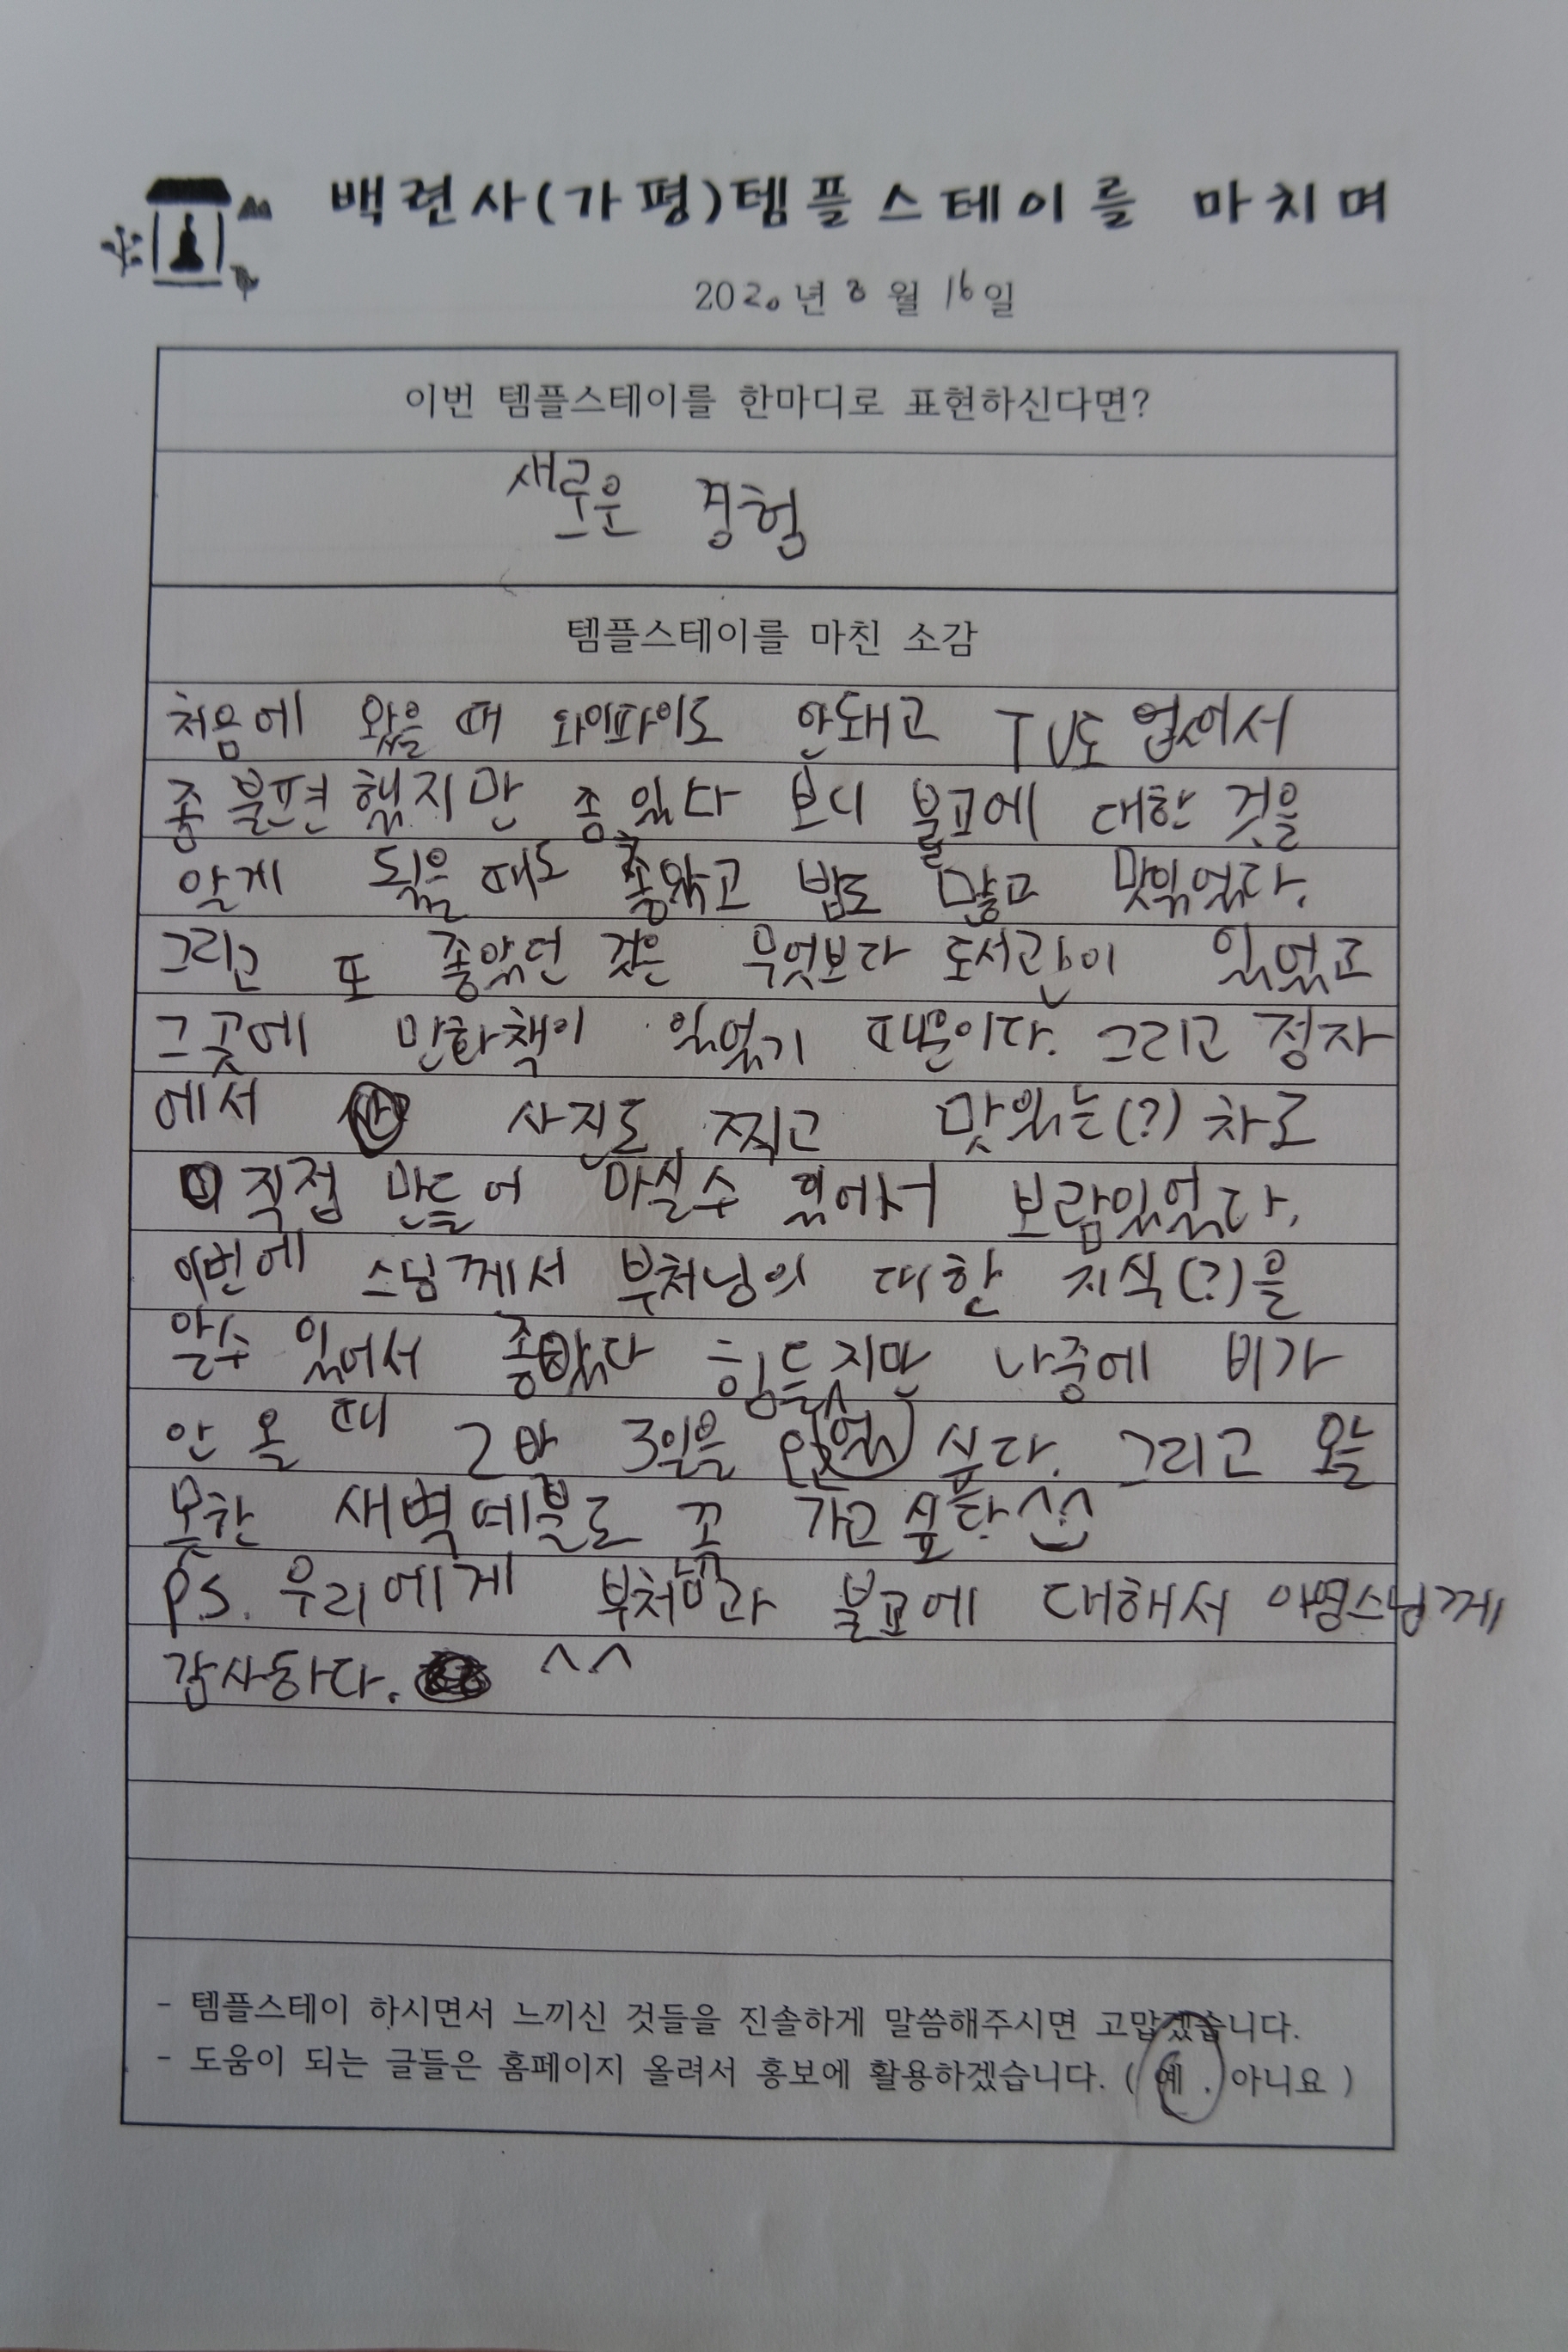 백련사(가평)템플스테이를 마치며
2020년 8월 16일
이번 템플스테이를 한마디로 표현하신다면?
새로운 경험
템플스테이를 마친 소감
처음에 왔을 때 와이파이도 안돼고 TV도 없어서
좀 불편했지만 좀 있다 보니 불교에 대한 것을
알게 됬을 때도 좋았고 밥도 많고 맛있었다.
그리고 또 좋았던 것은 무엇보다 도서관이 있었고
그곳에 만화책이 있었기 때문이다. 그리고 정자
에서 사진도 찍고 맛있는(?) 차도
직접 만들어 마실수 있어서 보람있었다.
이번에 스님께서 부처님의 대한 지식(?)을
알수 있어서 좋았다 힘들지만 나중에 비가
안 올 때 2박 3일을 싶다. 그리고 오늘
못한 새벽예불도 꼭 가고 싶다 ^^
P.S. 우리에게 부처님과 불교에 대해서 스님께
감사하다. ^^
- 템플스테이 하시면서 느끼신 것들을 진솔하게 말씀해주시면 고맙겠습니다.
- 도움이 되는 글들은 홈페이지 올려서 홍보에 활용하겠습니다. ( 예 . 아니요 )